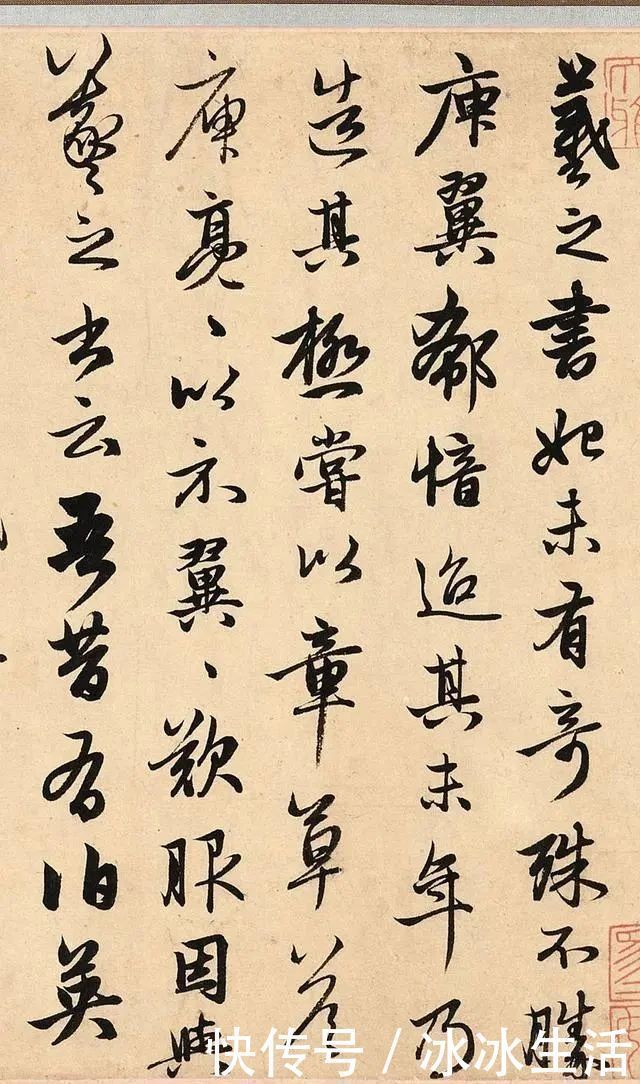 羲之書始未有奇殊不勝
庾翼郗愔迨其末年乃
造其極嘗以章草答
庾亮、以示翼、歎服因與
羲之書云吾昔有伯英
快传号 / 冰冰生活